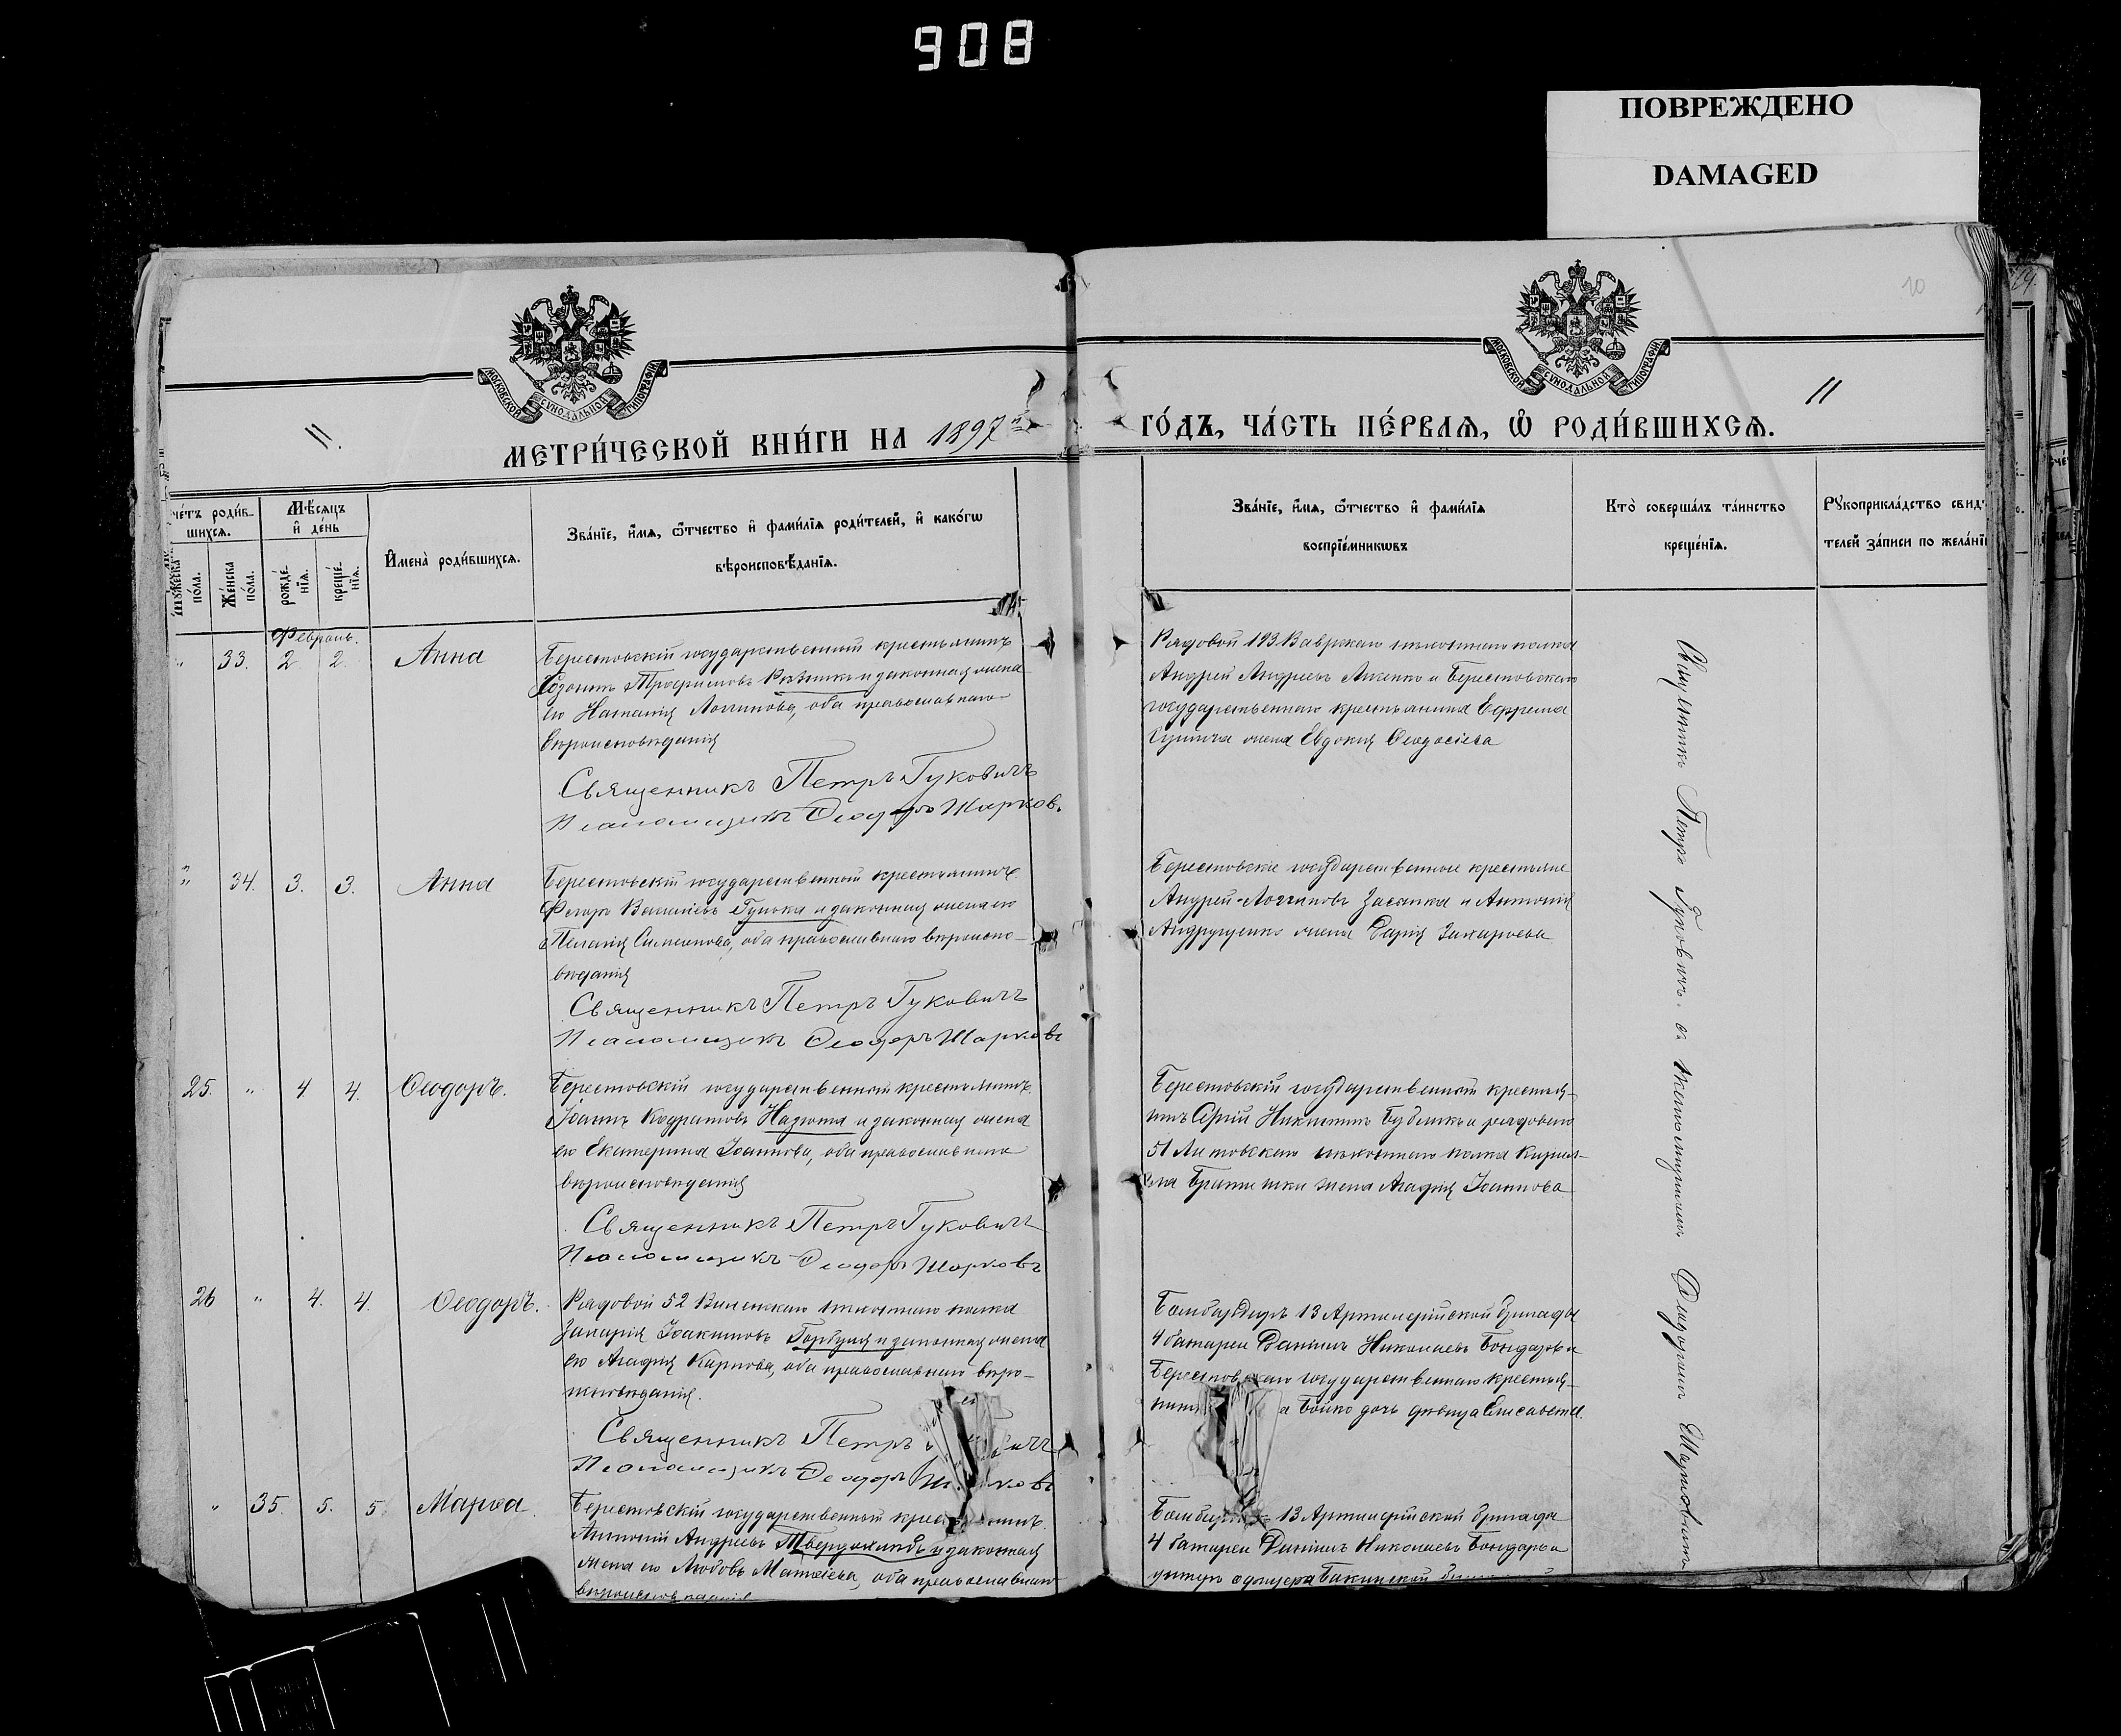 908
ПОВРЕЖДЕНО
DAMAGED
10
МОСКОВСКОЙ СѴНОДАЛЬНОЙ ТИПОГРАФІИ
МОСКОВСКОЙ СѴНОДАЛЬНОЙ ТИПОГРАФІИ
11.
11
МЕТРИ́ЧЕСКОЙ КНИ́ГИ НА 1897 ГО́ДЪ, ЧА́СТЬ ПЕ́РВАѦ, Ѡ РОДИ́ВШИХСѦ.
че́тъ роди́в-
шихсѧ.
Мѣ́сѧцъ
и де́нь
Му́жеска
по́ла.
Же́нска
по́ла.
рожде́-
нїѧ.
креще́-
нїѧ.
И́мена̀ роди́вшихсѧ.
Зва́нїе, и́мѧ, ѻ́тчество и фами́лїѧ роди́телей, и како́гѡ
вѣроисповѣ́данїѧ.
Зва́нїе, и́мѧ, ѻ́тчество и фами́лїѧ
воспрїе́мникѡвъ
Кто̀ соверша́лъ та́инство
креще́нїѧ.
Рꙋкоприкла́дство свид
телей за́писи по жела́нї
Февраль.
" 33. 2 2 Анна
Берестовскій государственный крестьянинъ
Созонтъ Трофимовъ Рѣзникъ и законная жена
его Наталія Логгинова, оба православнаго
вѣроисповѣданія
Священникъ Петръ Гуковичъ
Псаломщикъ Ѳеодоръ Шарковъ
Рядовой 193 пѣхотнаго полка
Андрей Андреевъ и Берестовскаго
государственнаго крестьянина Ефрема
жена Евдокія Ѳеодосіева
" 34. 3. 3. Анна
Берестовскій государственный крестьянинъ
Ѳеодоръ Василіевъ Гунька и законная жена его
Пелагія Симеонова, оба православнаго вѣроиспо-
вѣданія
Священникъ Петръ Гуковичъ
Псаломщикъ Ѳеодоръ Шарковъ
Берестовскіе государственные крестьяне
Андрей Логгиновъ Засенка и Антонія
Андрущенко жена Дарія Захаріева
25. " 4 4. Ѳеодоръ.
Берестовскій государственный крестьянинъ
Іоаннъ Кодратовъ Надюта и законная жена
его Екатерина Іоаннова, оба православнаго
вѣроисповѣданія
Священникъ Петръ Гуковичъ
Псаломщикъ Ѳеодоръ Шарковъ
Берестовскій государственный крестья-
нинъ Сергій Никитинъ и рядоваго
51 Литовскаго пѣхотнаго полка Кирил-
ла жена Агафія Іоаннова
26 " 4. 4. Ѳеодоръ.
Рядовой 52 Виленскаго пѣхотнаго полка
Захарія Іоакимовъ Горбуля и законная жена
его Агафія Карпова, оба православнаго вѣро-
исповѣданія.
Священникъ Петръ
Псаломщикъ Ѳеодоръ
Бомбардиръ 13 Артиллерійской бригады
4 батареи Даніилъ Николаевъ Бондарь и
Берестовскаго государственнаго крестья-
нина Бойко дочь дѣвица Елисавета.
" 35. 5. 5 Марѳа
Берестовскій государственный крестьянинъ
Антоній Андреевъ Твердохлѣбъ и законная
жена его Любовь Матѳіева, оба православнаго
вѣроисповѣданія
13 Артиллерійской бригады
4 батареи Даніилъ Николаевъ Бондарь и
унтеръ офицера Бакинской
Священникъ Петръ Гуковичъ съ псаломщикомъ Ѳеодоромъ Шарковымъ